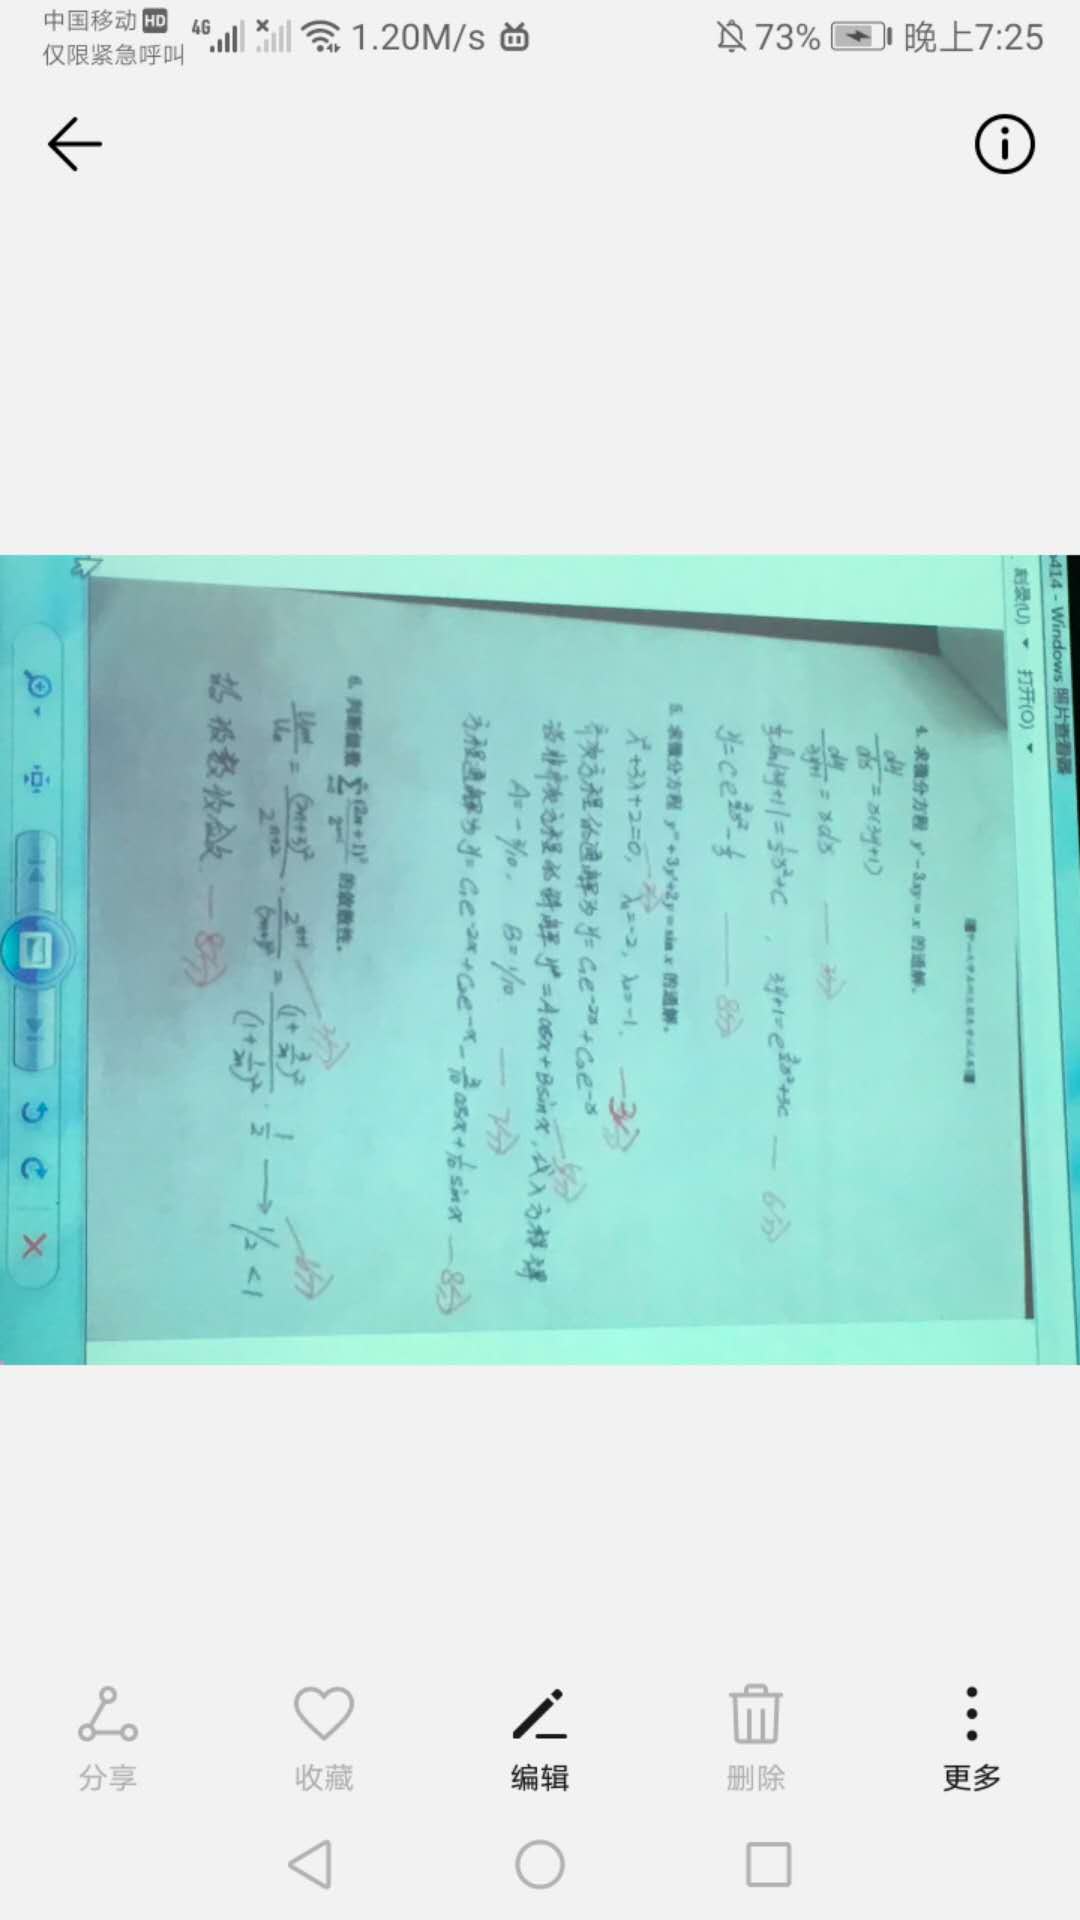 中国移动 HD 4G 1.20M/s 73% 晚上7:25
仅限紧急呼叫
414 - Windows 照片查看器
刻录(U) 打开(O)
4. 求微分方程 y' - 3xy = x 的通解.
dy/dx = x(3y+1)
dy/(3y+1) = xdx — 3分
1/3 ln|3y+1| = 1/2 x²+C , 3y+1 = e^(3/2 x²+3C) — 6分
y = Ce^(3/2 x²) - 1/3 — 8分
5. 求微分方程 y''+3y'+2y = sin x 的通解.
λ²+3λ+2=0, — 2分 λ₁=-2, λ₂=-1. — 3分
齐次方程的通解为 y = C₁e^(-2x) + C₂e^(-x) — 5分
设非齐次方程的特解 y* = Acosx + Bsinx, 代入方程得
A = -3/10, B = 1/10 — 7分
方程通解为 y = C₁e^(-2x) + C₂e^(-x) - 3/10 cosx + 1/10 sinx — 8分
6. 判断级数 的敛散性.
Un+1/Un = (2n+3)²/2^(n+2) · 2^(n+1)/(2n+1)² = (1+3/2n)²/(1+1/2n)² · 1/2 → 1/2 < 1
故级数收敛 — 8分
更多
删除
编辑
收藏
分享